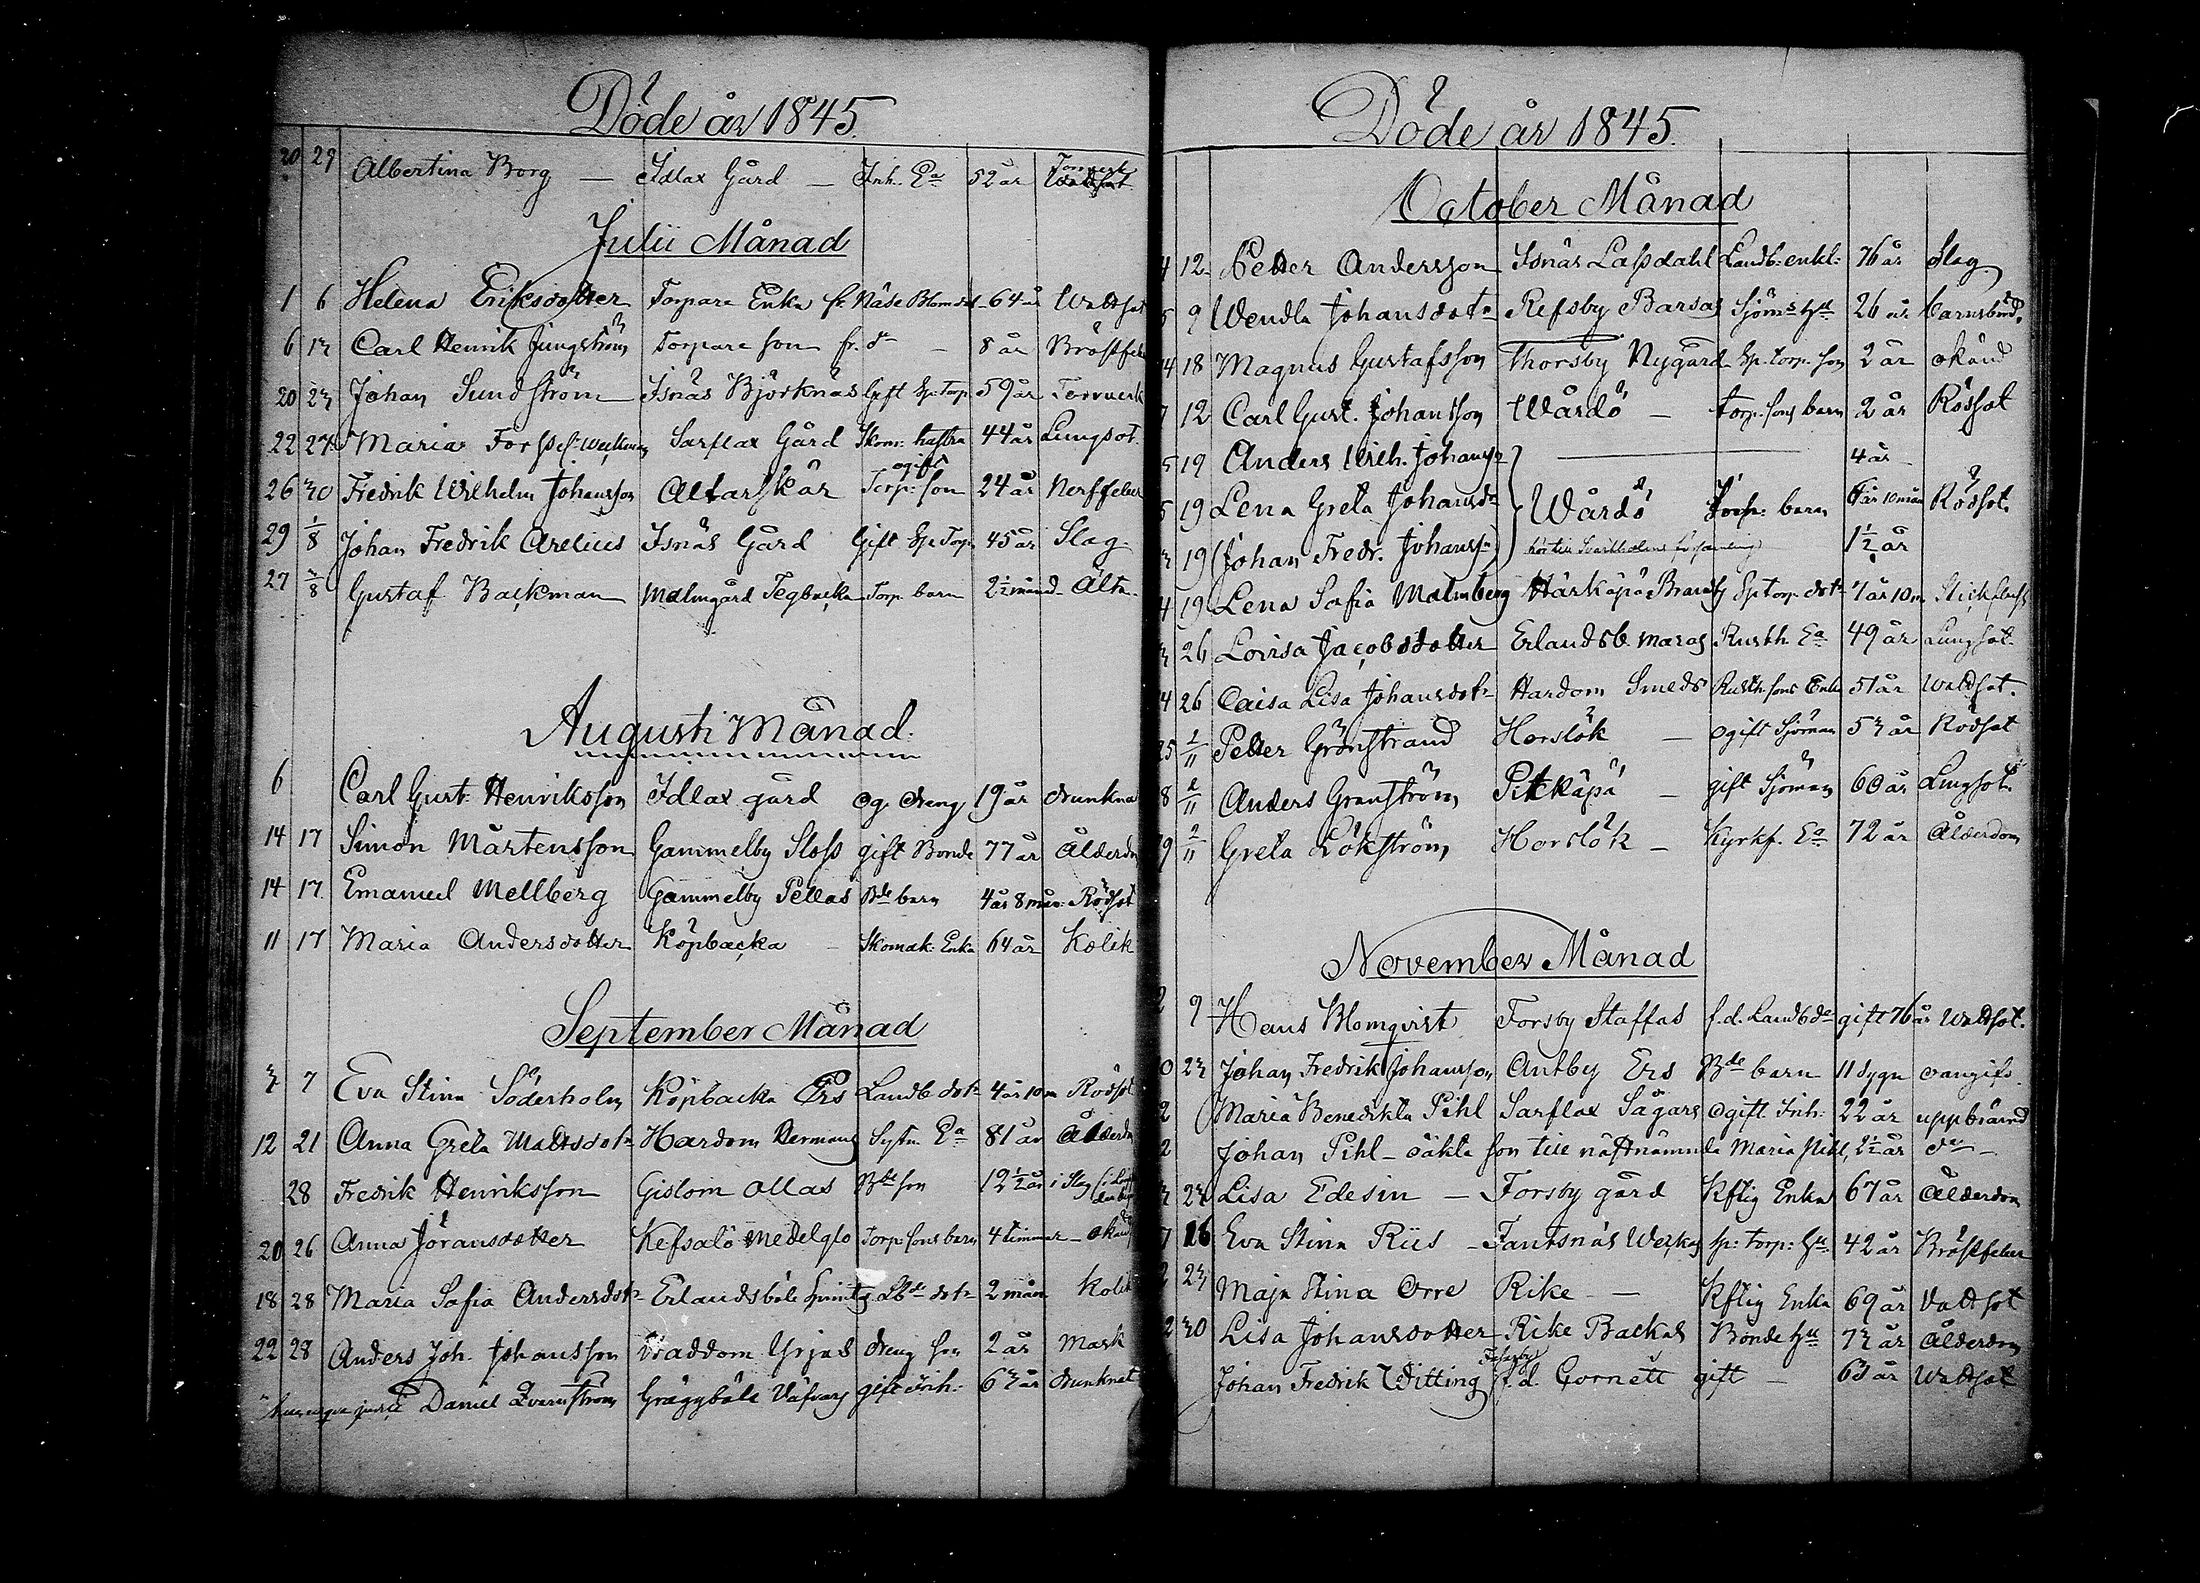 Döde år 1845.
20 29 Albertina Borg — Idlax Gård — Inh. Ea 52 år Torrverk
Julii Månad
1 6 Helena Eriksdotter Torpare Enka fr. Näse Blomdal 64 år Wattsot
6 13 Carl Henrik Ljungström Torpare son fr. do — 8 år Bröstfeber
20 23 Johan Sundström Isnäs Björknäs Gift Sp. Torp. 59 år Torrverk
22 27 Maria Forss f. Weckman Sarflax Gård Skom: hustru 44 år Lungsot.
26 30 Fredrik Wilhelm Johansson Altarskär ogift Torp: son 24 år Nerffeber
29 1/8 Johan Fredrik Arelius Isnäs Gård Gift Sp: Torp. 45 år Slag.
27 3/8 Gustaf Backman Malmgård Tegbacka Torp. barn 2½ månad Ältan
Augusti Månad.
6 Carl Gust. Henriksson Idlax gård og. dreng 19 år drunkna
14 17 Simon Mårtensson Gammelby Sloss gift Bonde 77 år Ålderdom
14 17 Emanuel Mellberg Gammelby Pellas Bde barn 4 år 8 mån. Rödsot
11 17 Maria Andersdotter Köpbacka — Skomak. Enka 64 år Kolik
September Månad
3 7 Eva Stina Söderholm Köpbacka Ers Landb. dotr 4 år 10 m Rödsot
12 21 Anna Greta Mattsdotr Hardom Hermans Sytn. Ea 81 år Ålderdom
28 Fredrik Henriksson Gislom Ollas Bde son 12½ år i Slag
20 26 Anna Jöransdotter Kefsalö Medelglo Torp. sons barn 4 timmar — okänd
18 28 Maria Sofia Andersdotr Erlandsböle Lbde dotr 2 mån Kolik
22 28 Anders Joh. Johansson Waddom Yrjas dreng son 2 år Mask
Daniel Qvarnström Gräggböle Väfvars gift Inh: 63 år drunknat
Döde år 1845.
October Månad
4 12 Petter Andersson Isnäs Lassdahl Landb: enkl: 76 år Slag
5 9 Wendla Johansdotr Refsby Barsas Sjöms hu 26 år barnsbörd
14 18 Magnus Gustafsson Thorsby Nygård Sp. torp. son 2 år okänd
7 12 Carl Gust. Johansson Wårdö — torp. sons barn 2 år Rödsot
5 19 Anders Wilh. Johanssn — 4 år
5 19 Lena Greta Johansdr Wårdö Torp: barn år 10 mån Rödsot.
3 19 (Johan Fredr. Johanssn) hör till Svartholms församling 1½ år
4 19 Lena Sofia Malmberg Härkäpä Sp torp dotr 7 år 10 m.
3 26 Lovisa Jacobsdotter Erlandsb. Maras Rusth. Ea 49 år Lungsot.
4 26 Caisa Lisa Johansdotr Hardom Smeds Rusth. sons Enka 51 år Wattsot.
25 2/11 Petter Grönstrand Horslök — ogift Sjöman 53 år Rödsot
8 2/11 Anders Granström Pitkäpä — gift Sjöman 60 år Lungsot.
9 2/11 Greta Lökström Horslök — Kyrkf. Ea 72 år Ålderdom
November Månad
2 9 Hans Blomqvist Forsby Staffas f.d. Landbde gift 76 år Wattsot.
0 23 Johan Fredrik Johansson Antby Ers Bde barn 11 dygn oangifv.
2 Maria Benedikta Pihl Sarflax Sågars ogift Inh: 22 år uppbränd
2 Johan Pihl — oäkta son till näst nämnda Maria Pihl, 2½ år do —
3 23 Lisa Edesin — Forsby gård Kflig Enka 67 år Ålderdom
7 16 Eva Stina Riis — Fantsnäs Werkas Sp: torp: hu: 42 år Bröstfeber
2 23 Maja Stina Orre Rike — Kflig Enka 69 år Vattsot
2 30 Lisa Johansdotter Rike Backas Bonde hu 73 år Ålderdom
Johan Fredrik Witting f.d. Cornett gift — 63 år Wattsot